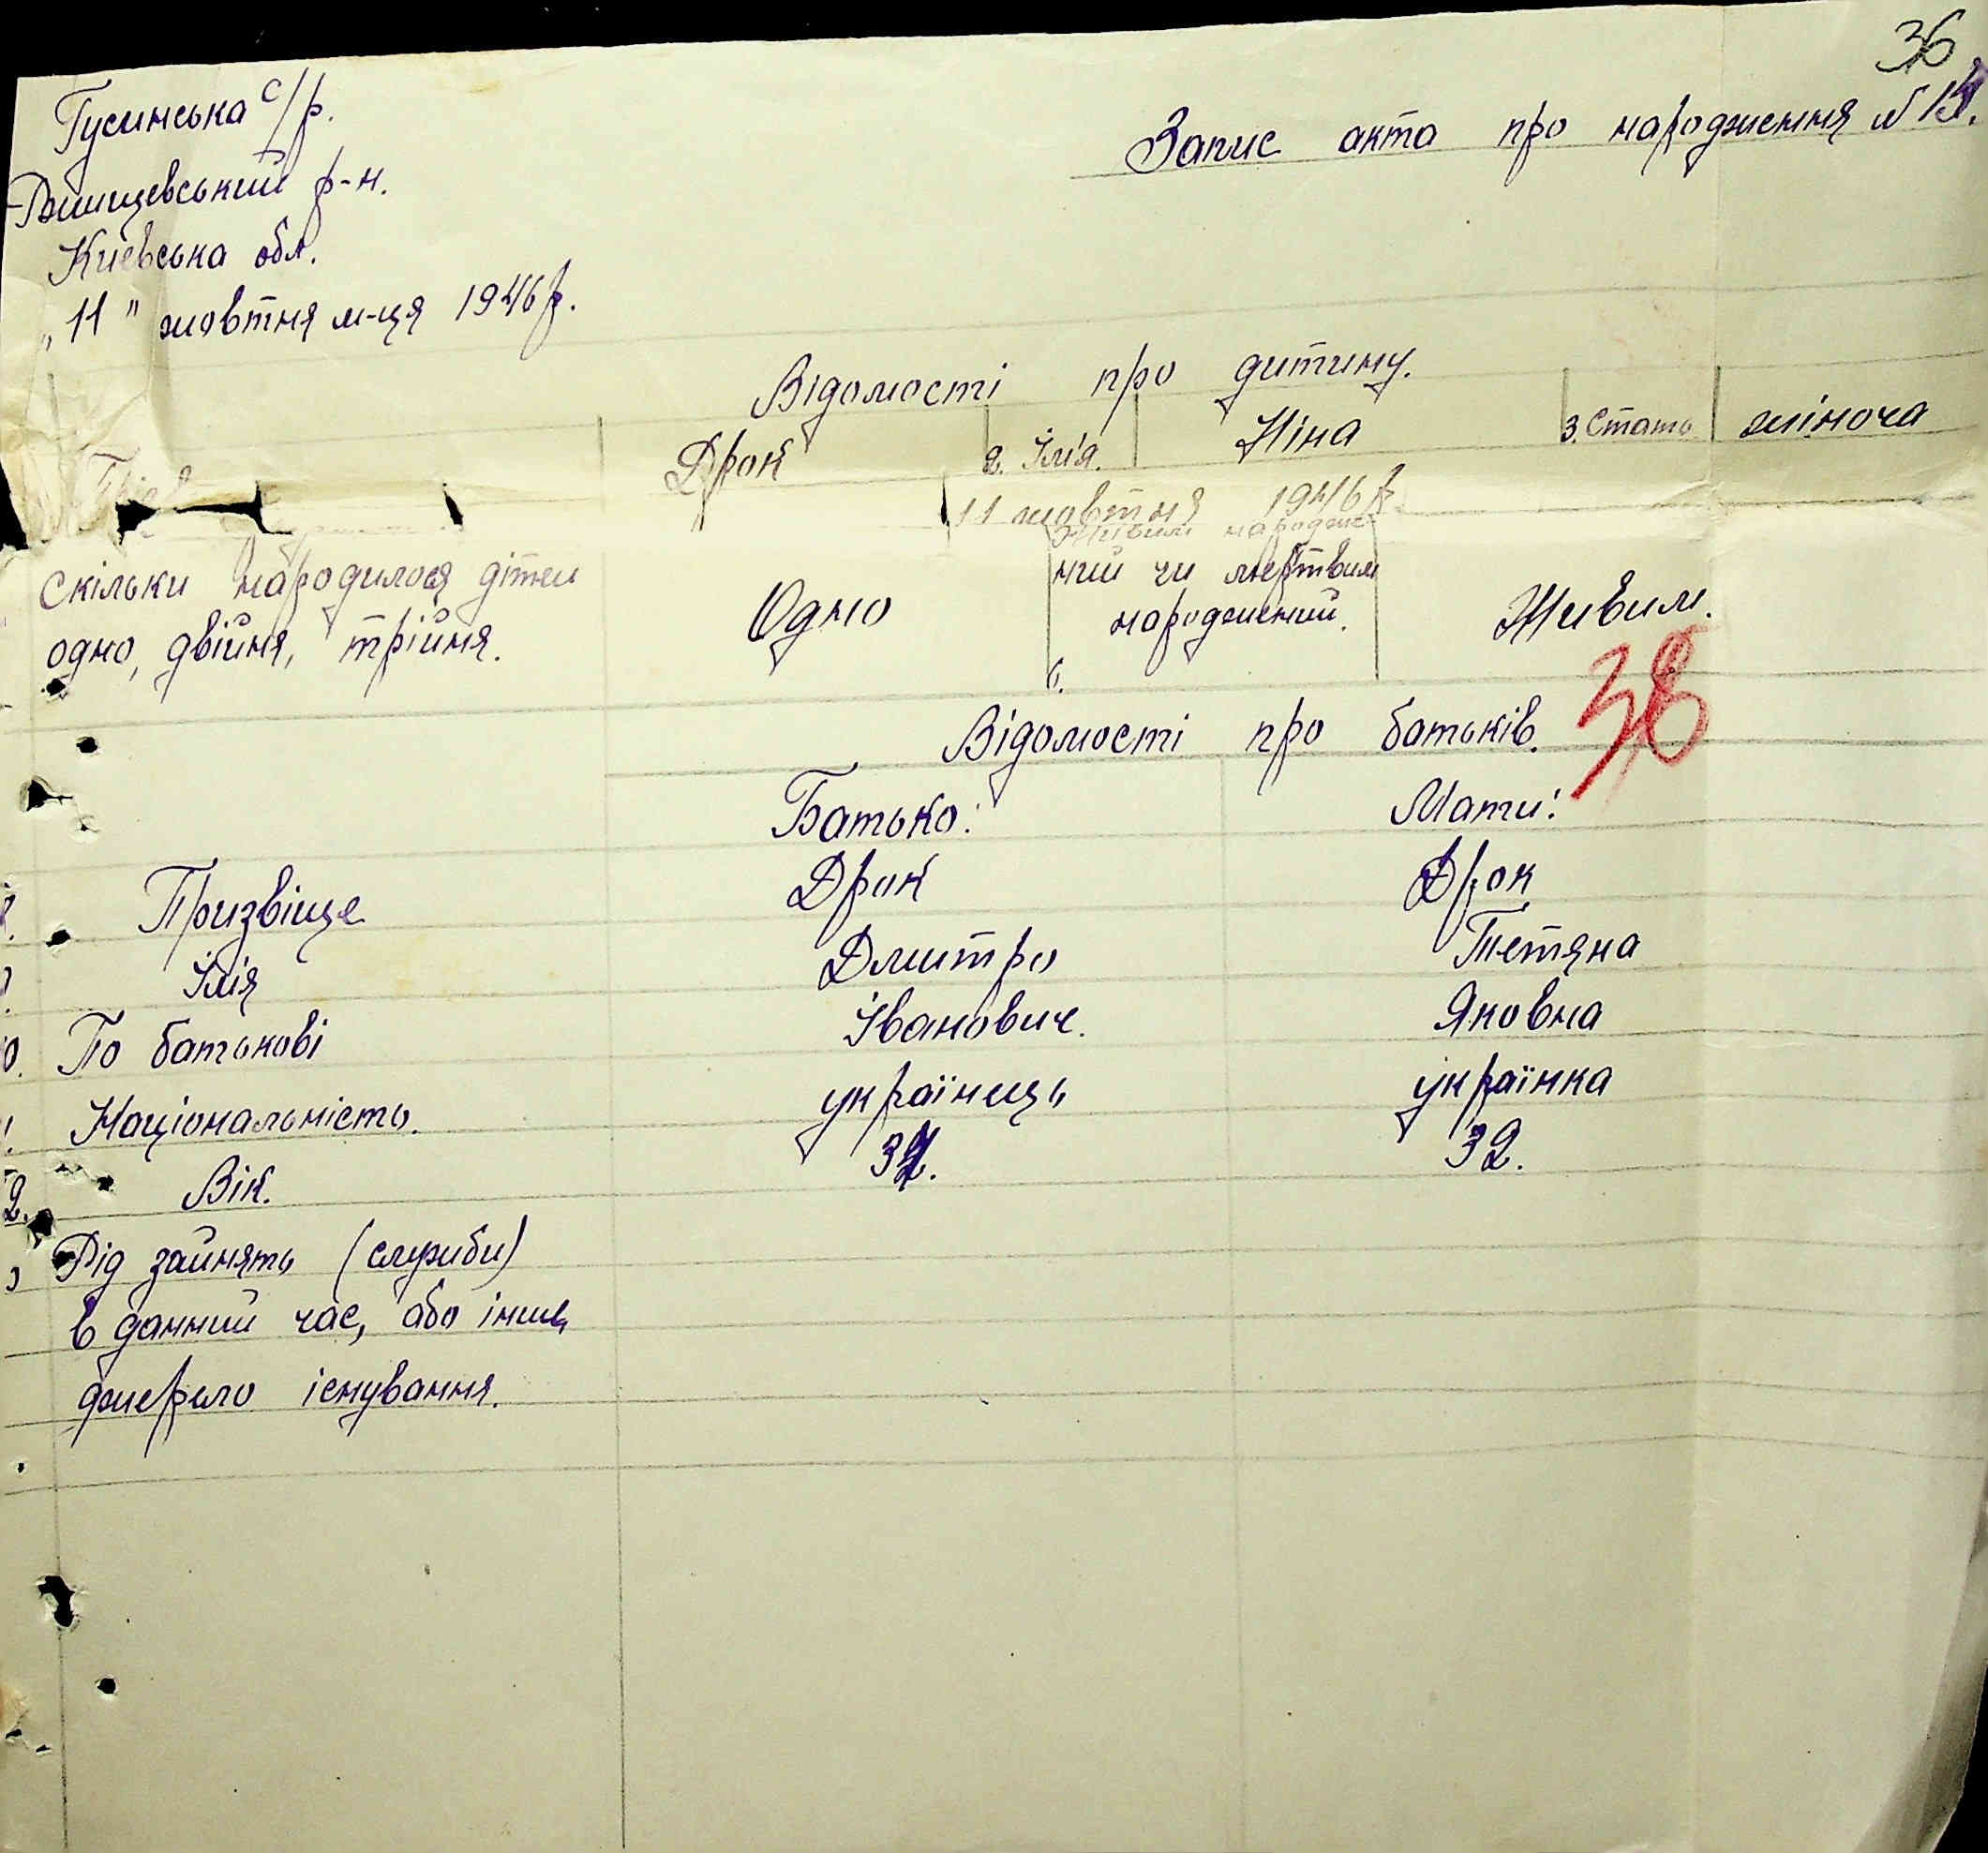 36
Гусинська с/р.
Запис акта про народження №
Ржищевський р-н.
Київська обл.
„11" жовтня м-ця 1946 р.
Відомості про дитину.
Дрок 2. Їм'я. Ніна 3. Стать жіноча
11 жовтня 1946 р.
Скільки народилося дітей
одно, двійня, трійня.
Одно
Живим народже-
ний чи мертвим
народжений.
6.
Живим.
38
Відомості про батьків.
Батько: Мати:
Призвіще Дрок Дрок
Їмія Дмитро Тетяна
По батькові Іванович. Яковна
Національність. українець українка
Вік. 32.
Рід зайнять (служби)
в данний час, або інше
джерело існування.